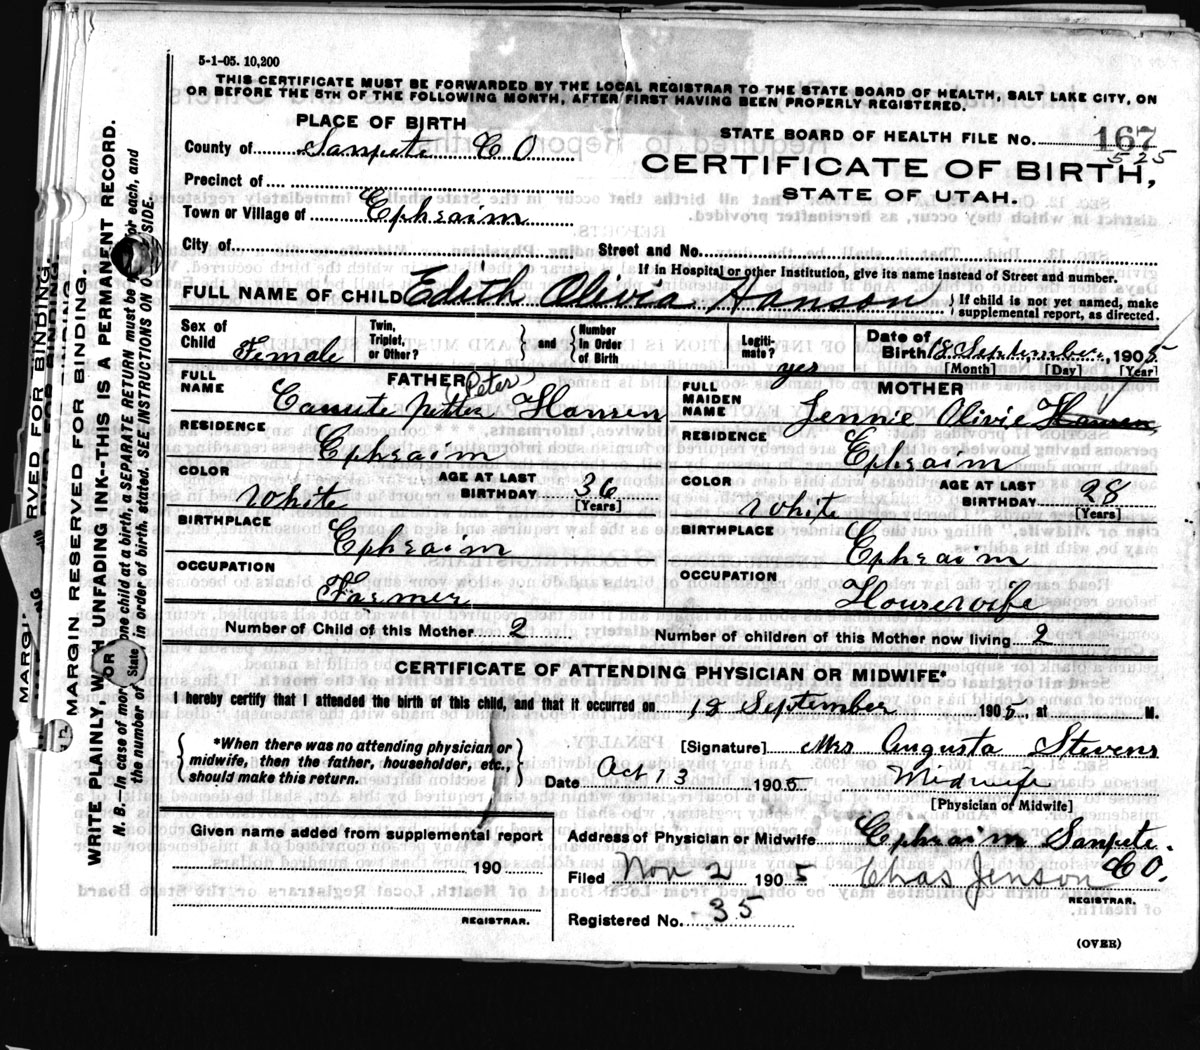 5-1-05. 10,200
THIS CERTIFICATE MUST BE FORWARDED BY THE LOCAL REGISTRAR TO THE STATE BOARD OF HEALTH, SALT LAKE CITY, ON
OR BEFORE THE 5TH OF THE FOLLOWING MONTH, AFTER FIRST HAVING BEEN PROPERLY REGISTERED.
PLACE OF BIRTH
County of Sanpete CO
Precinct of
Town or Village of Ephraim
City of
STATE BOARD OF HEALTH FILE No. 167
525
CERTIFICATE OF BIRTH,
STATE OF UTAH.
Street and No.
If in Hospital or other Institution, give its name instead of Street and number.
FULL NAME OF CHILD Edith Olivia Hanson
If child is not yet named, make
supplemental report, as directed.
Sex of Child Female
Twin, Triplet, or Other?
and
Number in Order of Birth
Legitimate? yes
Date of Birth 18 September, 1905
[Month] [Day] [Year]
FATHER
FULL NAME Canute Petter Hansen
Peter
RESIDENCE Ephraim
COLOR White
AGE AT LAST BIRTHDAY 36
[Years]
BIRTHPLACE Ephraim
OCCUPATION Farmer
MOTHER
FULL MAIDEN NAME Jennie Olivie Hansen
RESIDENCE Ephraim
COLOR White
AGE AT LAST BIRTHDAY 28
[Years]
BIRTHPLACE Ephraim
OCCUPATION Housewife
Number of Child of this Mother 2
Number of children of this Mother now living 2
CERTIFICATE OF ATTENDING PHYSICIAN OR MIDWIFE*
I hereby certify that I attended the birth of this child, and that it occurred on 18 September 1905, at M.
*When there was no attending physician or
midwife, then the father, householder, etc.,
should make this return.
[Signature] Mrs Augusta Stevens
Date Oct 13 1905
Midwife
[Physician or Midwife]
Given name added from supplemental report
190
REGISTRAR.
Address of Physician or Midwife Ephraim Sanpete CO.
Filed Nov 2 1905 Chas Jenson
REGISTRAR.
Registered No. 35
(OVER)
MARGIN RESERVED FOR BINDING.
WRITE PLAINLY, WITH UNFADING INK--THIS IS A PERMANENT RECORD.
N. B.--In case of more one child at a birth, a SEPARATE RETURN must be for each, and
the number of in order of birth, stated. SEE INSTRUCTIONS ON SIDE.